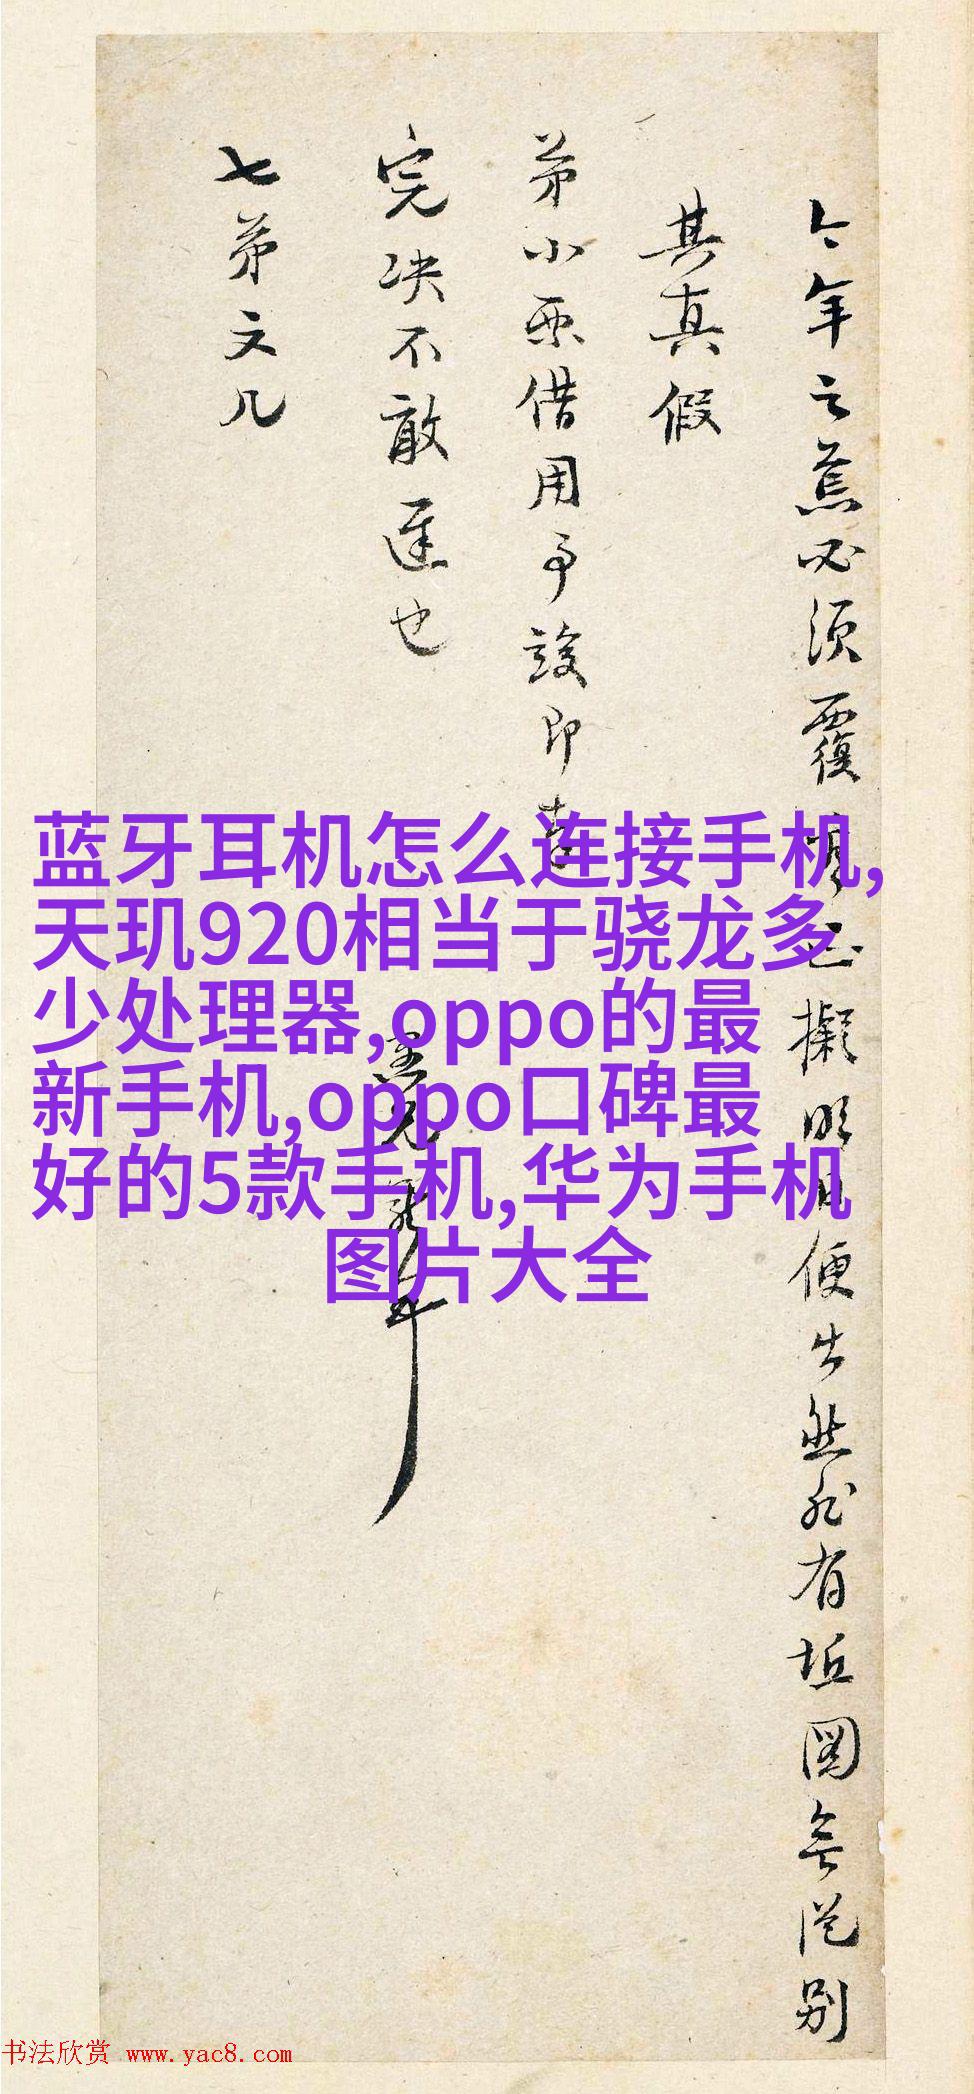 今年之蕉必须覆
擬明日便出然非有垢図無從别
其真假
第小票借用事竣即
完决不敢遲也
七弟文几
蓝牙耳机怎么连接手机,
天玑920相当于骁龙多
少处理器,oppo的最
新手机,oppo口碑最
好的5款手机,华为手机
图片大全
书法欣赏 www.yac8.com